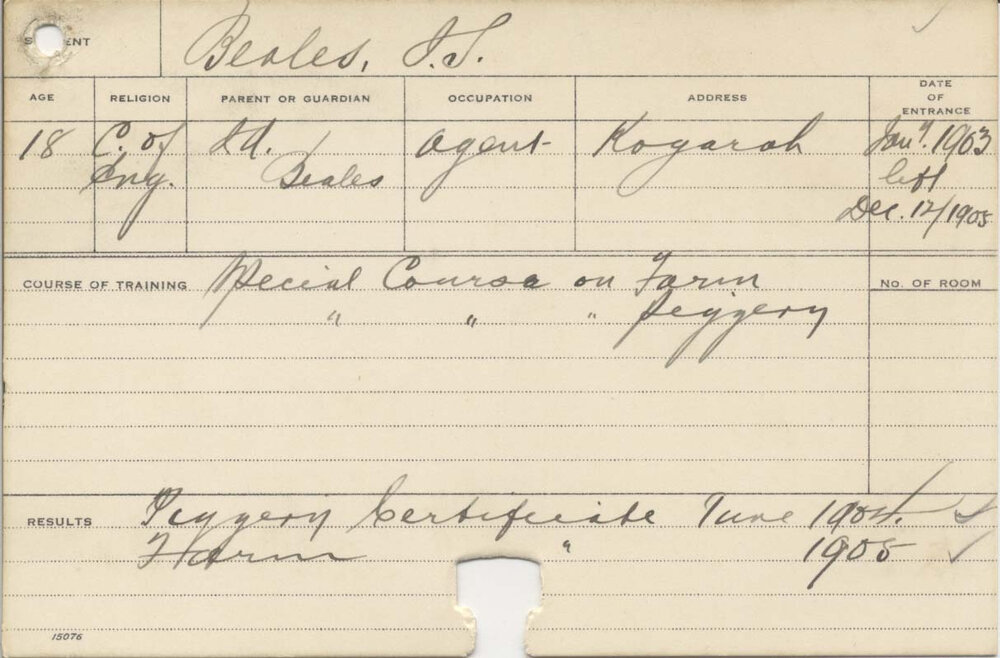 Beales,
AGE RELIGION PARENT OR GUARDIAN OCCUPATION ADDRESS DATE OF ENTRANCE
18 C. of Beales agent Kogarah Jany. 1903
Eng. left
Dec. 12/1905
COURSE OF TRAINING Special Course on Farm No. OF ROOM
" " " Piggery
RESULTS Piggery Certificate June 1904.
Farm " 1905
15076